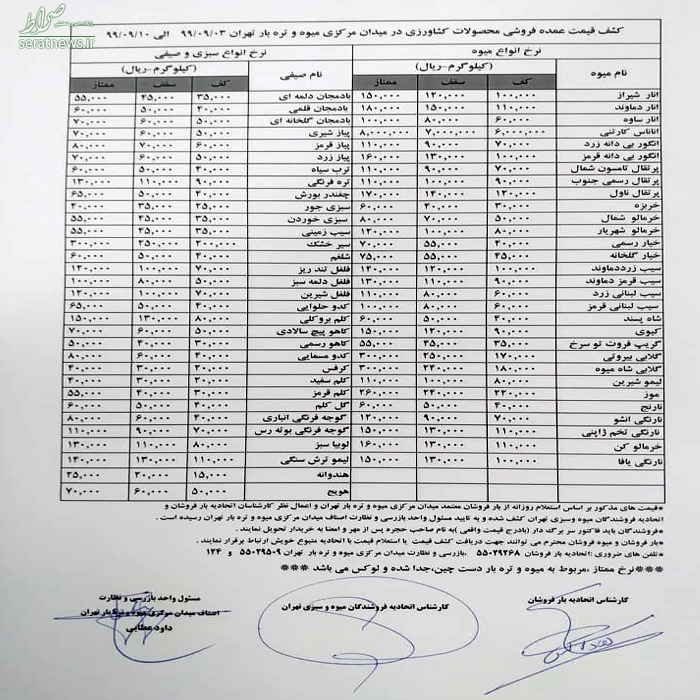 صراط
seratnews.ir
کشف قیمت عمده فروشی محصولات کشاورزی در میدان مرکزی میوه و تره بار تهران ۹۹/۰۹/۰۳ الی ۹۹/۰۹/۱۰
نرخ انواع میوه نرخ انواع سبزی و صیفی
نام میوه (کیلوگرم-ریال) نام صیفی (کیلوگرم-ریال)
کف سقف ممتاز کف سقف ممتاز
انار شیراز ۱۰۰,۰۰۰ ۱۲۰,۰۰۰ ۱۵۰,۰۰۰ بادمجان دلمه ای ۳۵,۰۰۰ ۴۵,۰۰۰ ۵۵,۰۰۰
انار دماوند ۱۱۰,۰۰۰ ۱۵۰,۰۰۰ ۱۸۰,۰۰۰ بادمجان قلمی ۴۰,۰۰۰ ۵۰,۰۰۰ ۶۰,۰۰۰
انار ساوه ۶۰,۰۰۰ ۸۰,۰۰۰ ۱۰۰,۰۰۰ بادمجان گلخانه ای ۵۰,۰۰۰ ۶۰,۰۰۰ ۷۰,۰۰۰
آناناس کارتنی ۶,۰۰۰,۰۰۰ ۷,۰۰۰,۰۰۰ ۸,۰۰۰,۰۰۰ پیاز شیری ۵۰,۰۰۰ ۶۰,۰۰۰ ۷۰,۰۰۰
انگور بی دانه زرد ۷۰,۰۰۰ ۹۰,۰۰۰ ۱۱۰,۰۰۰ پیاز قرمز ۶۰,۰۰۰ ۷۰,۰۰۰ ۸۰,۰۰۰
انگور بی دانه قرمز ۱۰۰,۰۰۰ ۱۳۰,۰۰۰ ۱۶۰,۰۰۰ پیاز زرد ۵۰,۰۰۰ ۶۰,۰۰۰ ۷۰,۰۰۰
پرتقال تامسون شمال ۷۰,۰۰۰ ۹۰,۰۰۰ ۱۱۰,۰۰۰ ترب سیاه ۴۰,۰۰۰ ۵۰,۰۰۰ ۶۰,۰۰۰
پرتقال رسمی جنوب ۹۰,۰۰۰ ۱۱۰,۰۰۰ ۱۱۰,۰۰۰ تره فرنگی ۹۰,۰۰۰ ۱۱۰,۰۰۰ ۱۳۰,۰۰۰
پرتقال ناول ۱۲۰,۰۰۰ ۱۴۰,۰۰۰ ۱۷۰,۰۰۰ چغندر بورش ۴۰,۰۰۰ ۵۰,۰۰۰ ۶۵,۰۰۰
خربزه ۳۰,۰۰۰ ۴۰,۰۰۰ ۶۰,۰۰۰ سبزی جور ۲۵,۰۰۰ ۳۵,۰۰۰ ۴۰,۰۰۰
خرمالو شمال ۵۰,۰۰۰ ۷۰,۰۰۰ ۸۰,۰۰۰ سبزی خوردن ۳۵,۰۰۰ ۴۵,۰۰۰ ۵۵,۰۰۰
خرمالو شهریار ۸۰,۰۰۰ ۱۰۰,۰۰۰ ۱۲۰,۰۰۰ سیب زمینی ۳۵,۰۰۰ ۴۵,۰۰۰ ۵۵,۰۰۰
خیار رسمی ۴۰,۰۰۰ ۵۵,۰۰۰ ۷۰,۰۰۰ سیر خشک ۲۰۰,۰۰۰ ۲۵۰,۰۰۰ ۳۰۰,۰۰۰
خیار گلخانه ۴۵,۰۰۰ ۵۵,۰۰۰ ۷۵,۰۰۰ شلغم ۴۰,۰۰۰ ۵۰,۰۰۰ ۶۰,۰۰۰
سیب زرددماوند ۱۰۰,۰۰۰ ۱۲۰,۰۰۰ ۱۴۰,۰۰۰ فلفل تند ریز ۷۰,۰۰۰ ۱۰۰,۰۰۰ ۱۲۰,۰۰۰
سیب قرمز دماوند ۹۰,۰۰۰ ۱۱۰,۰۰۰ ۱۳۰,۰۰۰ فلفل دلمه سبز ۵۰,۰۰۰ ۸۰,۰۰۰ ۱۰۰,۰۰۰
سیب لبنانی زرد ۶۰,۰۰۰ ۸۰,۰۰۰ ۱۱۰,۰۰۰ فلفل شیرین ۷۰,۰۰۰ ۱۰۰,۰۰۰ ۱۲۰,۰۰۰
سیب لبنانی قرمز ۶۰,۰۰۰ ۸۰,۰۰۰ ۱۰۰,۰۰۰ کدو حلوایی ۴۰,۰۰۰ ۵۰,۰۰۰ ۶۵,۰۰۰
شاه پسند ۴۰,۰۰۰ ۵۰,۰۰۰ ۶۰,۰۰۰ کلم بروکلی ۸۰,۰۰۰ ۱۳۰,۰۰۰ ۱۵۰,۰۰۰
کیوی ۹۰,۰۰۰ ۱۲۰,۰۰۰ ۱۵۰,۰۰۰ کاهو پیچ سالادی ۵۰,۰۰۰ ۶۰,۰۰۰ ۷۰,۰۰۰
گریپ فروت تو سرخ ۳۵,۰۰۰ ۴۵,۰۰۰ ۵۵,۰۰۰ کاهو رسمی ۳۰,۰۰۰ ۴۰,۰۰۰ ۵۰,۰۰۰
گلابی بیروتی ۱۷۰,۰۰۰ ۲۵۰,۰۰۰ ۳۰۰,۰۰۰ کدو مسمایی ۴۰,۰۰۰ ۶۰,۰۰۰ ۸۰,۰۰۰
گلابی شاه میوه ۱۸۰,۰۰۰ ۲۴۰,۰۰۰ ۳۰۰,۰۰۰ کرفس ۲۰,۰۰۰ ۳۰,۰۰۰ ۴۰,۰۰۰
لیمو شیرین ۸۰,۰۰۰ ۱۰۰,۰۰۰ ۱۱۰,۰۰۰ کلم سفید ۲۰,۰۰۰ ۳۰,۰۰۰ ۴۰,۰۰۰
موز ۲۲۰,۰۰۰ ۲۴۰,۰۰۰ ۲۶۰,۰۰۰ کلم قرمز ۳۰,۰۰۰ ۴۰,۰۰۰ ۵۵,۰۰۰
نارنج ۴۰,۰۰۰ ۵۰,۰۰۰ ۶۰,۰۰۰ گل کلم ۴۰,۰۰۰ ۵۰,۰۰۰ ۶۰,۰۰۰
نارنگی انشو ۷۰,۰۰۰ ۹۰,۰۰۰ ۱۲۰,۰۰۰ گوجه فرنگی انباری ۴۰,۰۰۰ ۶۰,۰۰۰ ۸۰,۰۰۰
نارنگی تخم ژاپنی ۱۱۰,۰۰۰ ۱۳۰,۰۰۰ ۱۵۰,۰۰۰ گوجه فرنگی بوته رس ۷۰,۰۰۰ ۹۰,۰۰۰ ۱۱۰,۰۰۰
خرمالو کن ۱۱۰,۰۰۰ ۱۳۰,۰۰۰ ۱۶۰,۰۰۰ لوبیا سبز ۸۰,۰۰۰ ۱۱۰,۰۰۰ ۱۳۰,۰۰۰
نارنگی یافا ۱۰۰,۰۰۰ ۱۳۰,۰۰۰ ۱۵۰,۰۰۰ لیمو ترش سنگی ۱۱۰,۰۰۰ ۱۳۰,۰۰۰ ۱۴۰,۰۰۰
هندوانه ۱۵,۰۰۰ ۲۰,۰۰۰ ۲۵,۰۰۰
هویج ۵۰,۰۰۰ ۶۰,۰۰۰ ۷۰,۰۰۰
*قیمت های مذکور بر اساس استعلام روزانه از بار فروشان معتمد میدان مرکزی میوه و تره بار تهران و اعمال نظر کارشناسان اتحادیه بار فروشان و
اتحادیه فروشندگان میوه وسبزی تهران کشف شده و به تایید مسئول واحد بازرسی و نظارت اصناف میدان مرکزی میوه و تره بار تهران رسیده است .
*فروشندگان باید فاکتور سر برگ دار (بادرج قیمت واقعی )به نام صاحب حجره پس از مهر و امضا به خریدار تحویل نمایند .
*بار فروشان و میوه فروشان محترم می توانند جهت دریافت کشف قیمت یا استعلام قیمت با اتحادیه متبوع خویش ارتباط برقرار نمایند .
*تلفن های ضروری :اتحادیه بار فروشان ۵۵۰۲۹۲۶۸ .بازرسی و نظارت میدان مرکزی میوه و تره بار تهران ۵۵۰۲۹۵۰۹ و ۱۲۴
***نرخ ممتاز ،مربوط به میوه و تره بار دست چین،جدا شده و لوکس می باشد ***
کارشناس اتحادیه بار فروشان کارشناس اتحادیه فروشندگان میوه و سبزی تهران مسئول واحد بازرسی و نظارت
اصناف میدان مرکزی میوه و تره بار تهران
داود عطایی